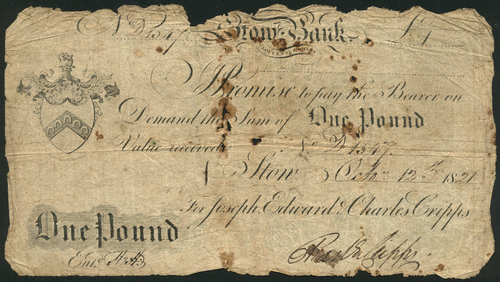 No Stow Bank £1
I Promise to pay the Bearer on
Demand the Sum of One Pound
Value received No
Stow 12th 1821
For Joseph, Edward & Charles Cripps
One Pound
Entd
Cripps